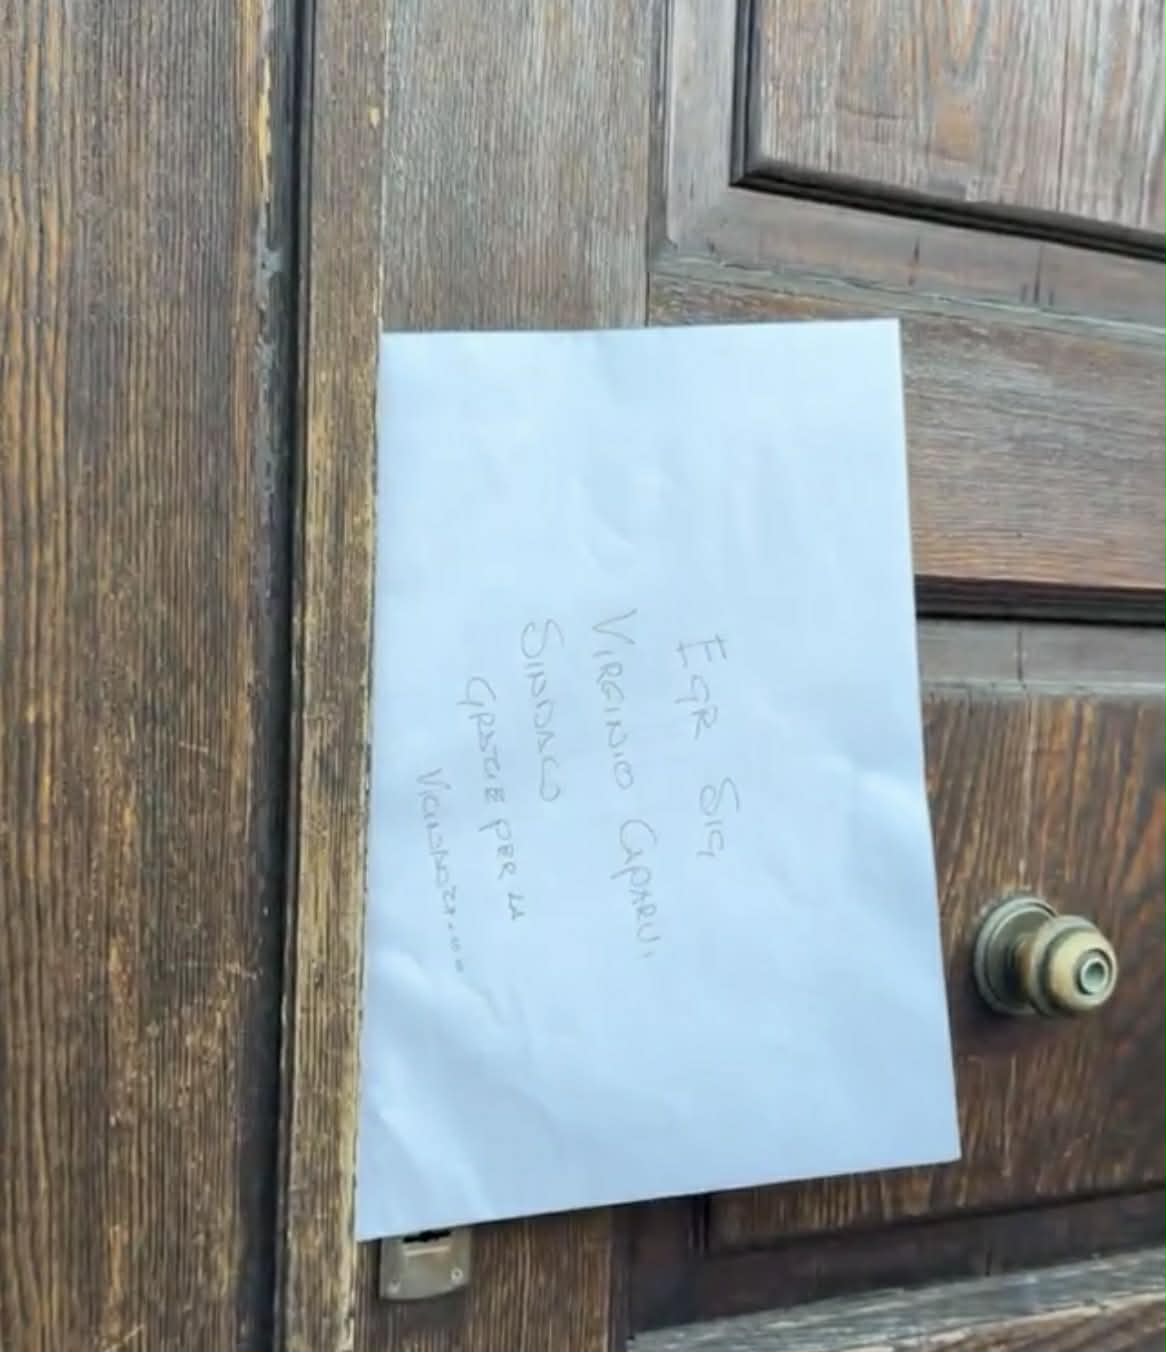 EGR SIG
VIRGINIO CAPARVI
SINDACO
GRAZIE PER LA
VICINANZA....